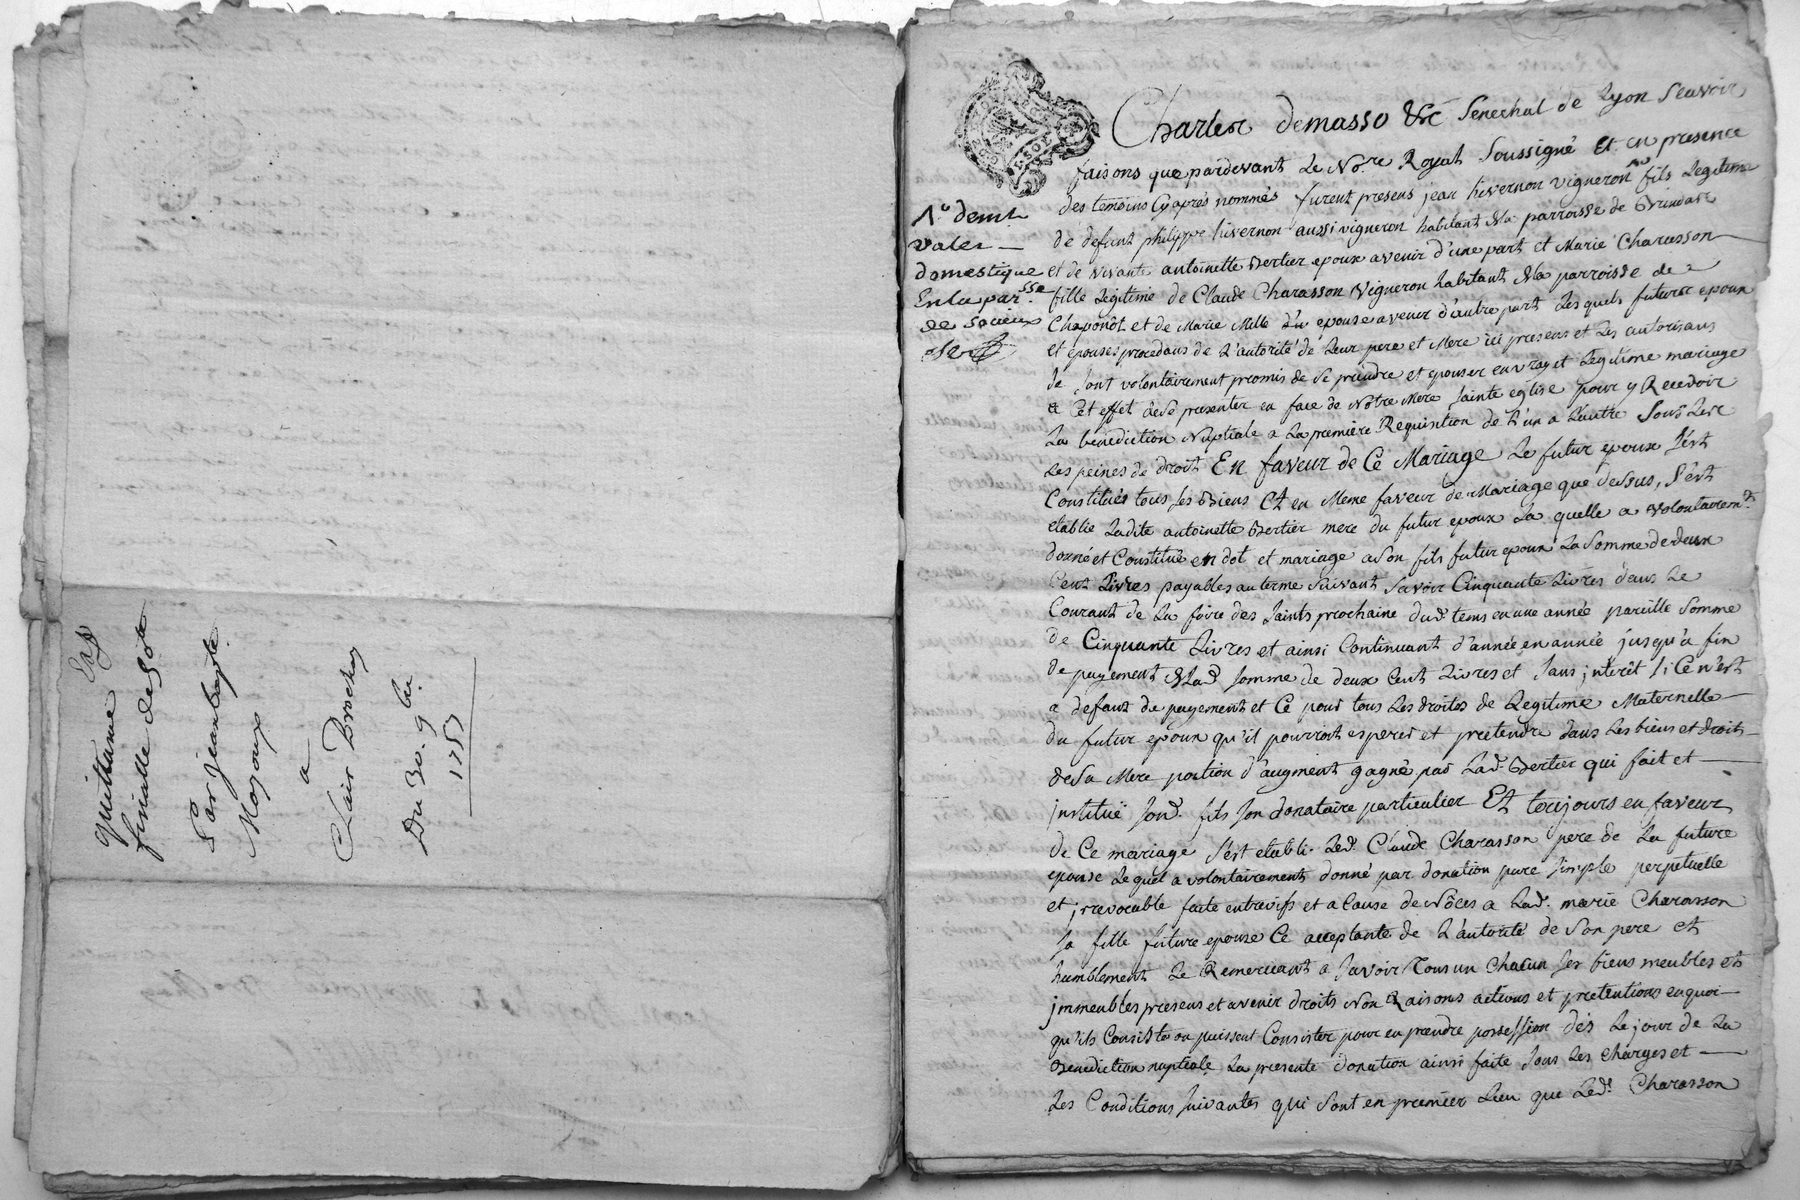 Exp
quittance
finalle de 50#
Par jean baptte
Mazoux
a
Clair Brochay
Du 30. 9bre
1757
Charles demasso &c Senechal de Lyon Scavoir
faisons que pardevant Le No.re Royal Soussigné Et en presence
des temoins Cy après nommés furent presens jean hivernon vigneron fils Legitime
de defunt philippe hivernon aussi vigneron habitant de la parroisse de Brindas
et de vivante antoinette Bertier epoux avenir d'une part et Marie Charasson
fille Legitime de Claude Charasson Vigneron habitant de la parroisse de
Chaponôt et de Marie Mille d'u epouse avenir d'autre part Lesquels futurs epoux
et epouses procedans de L'autorité de Leur pere et Mere ici presens et Les autorisans
Se sont volontairement promis de Se prendre et epouser en vray et Legitime mariage
a Cet effet de Se presenter en face de Nôtre Mere Sainte eglise pour y Recevoir
La bénédiction Nuptiale a La premiere Requisition de L'un a L'autre Sous Les
Les peines de droit En faveur de Ce Mariage Le futur epoux S'est
Constitués tous Ses Biens Et en Meme faveur de Mariage que dessus, S'est
etablie Ladite antoinette Bertier mere du futur epoux La quelle a volontairemt
donné et Constitué en dot et mariage a Son fils futur epoux La Somme de deux
Cent Livres payables au terme Suivant Savoir Cinquante Livres dans Le
Courant de La foire des Saints prochaine dud. tems en une année pareille Somme
de Cinquante Livres et ainsi Continuant d'année en année jusqu'a fin
de payement de Lad. Somme de deux Cent Livres et Sans interêt Si Ce n'est
a defaut de payement et Ce pour tous Les droits de Legitime Maternelle
du futur epoux qu'il pourroit esperer et pretendre dans Les biens et droits
de Sa Mere portion d'augment gagné par Lad. Bertier qui fait et
institue Sond. fils Son donataire particulier Et toujours en faveur
de Ce mariage S'est etabli Led. Claude Charasson pere de La future
epouse Lequel a volontairement donné par donation pure Simple perpetuelle
et irrevocable faite entrevifs et a Cause de Nôces a Lad. marie Charasson
Sa fille future epouse Ce acceptante de L'autorité de Son pere et
humblement Le Remerciant a Savoir Tous un Chacun Ses biens meubles et
immeubles presens et avenir droits Nom Raisons actions et pretentions en quoi
qu'ils Consistes ou puissent Consister pour en prendre possession dès Le jour de La
Benediction nuptiale La presente donation ainsi faite Sous Les charges et
Les Conditions Suivantes qui Sont en premier Lieu que Led. Charasson
valet
domestique
En La parsse
de